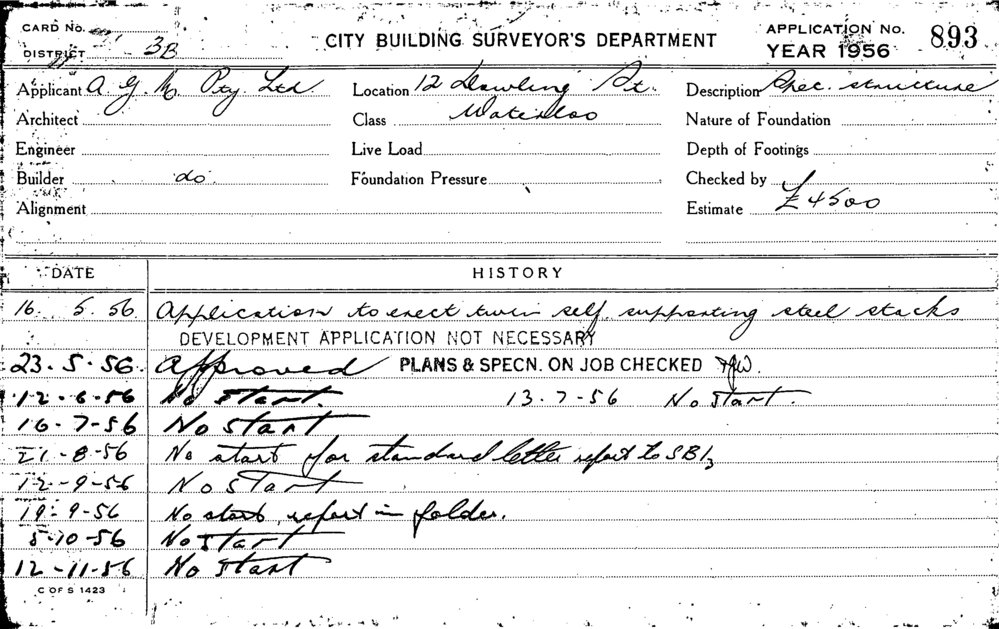 CARD No.
DISTRICT 3B
CITY BUILDING SURVEYOR'S DEPARTMENT
APPLICATION No. 893
YEAR 1956
Applicant A. G. M. Pty Ltd Location 12 Dowling St. Description Spec. structure
Architect Class Waterloo Nature of Foundation
Engineer Live Load Depth of Footings
Builder do. Foundation Pressure Checked by
Alignment Estimate £4500
DATE HISTORY
16. 5. 56 Application to erect twin self supporting steel stacks
DEVELOPMENT APPLICATION NOT NECESSARY
23.5.56. Approved PLANS & SPECN. ON JOB CHECKED
12-6-56 No Start. 13-7-56 No Start.
16-7-56 No Start
21-8-56 No start for standard letter report to SBI
12-9-56 No Start
19-9-56 No start, report in folder.
5-10-56 No Start
12-11-56 No Start
C OF S 1423